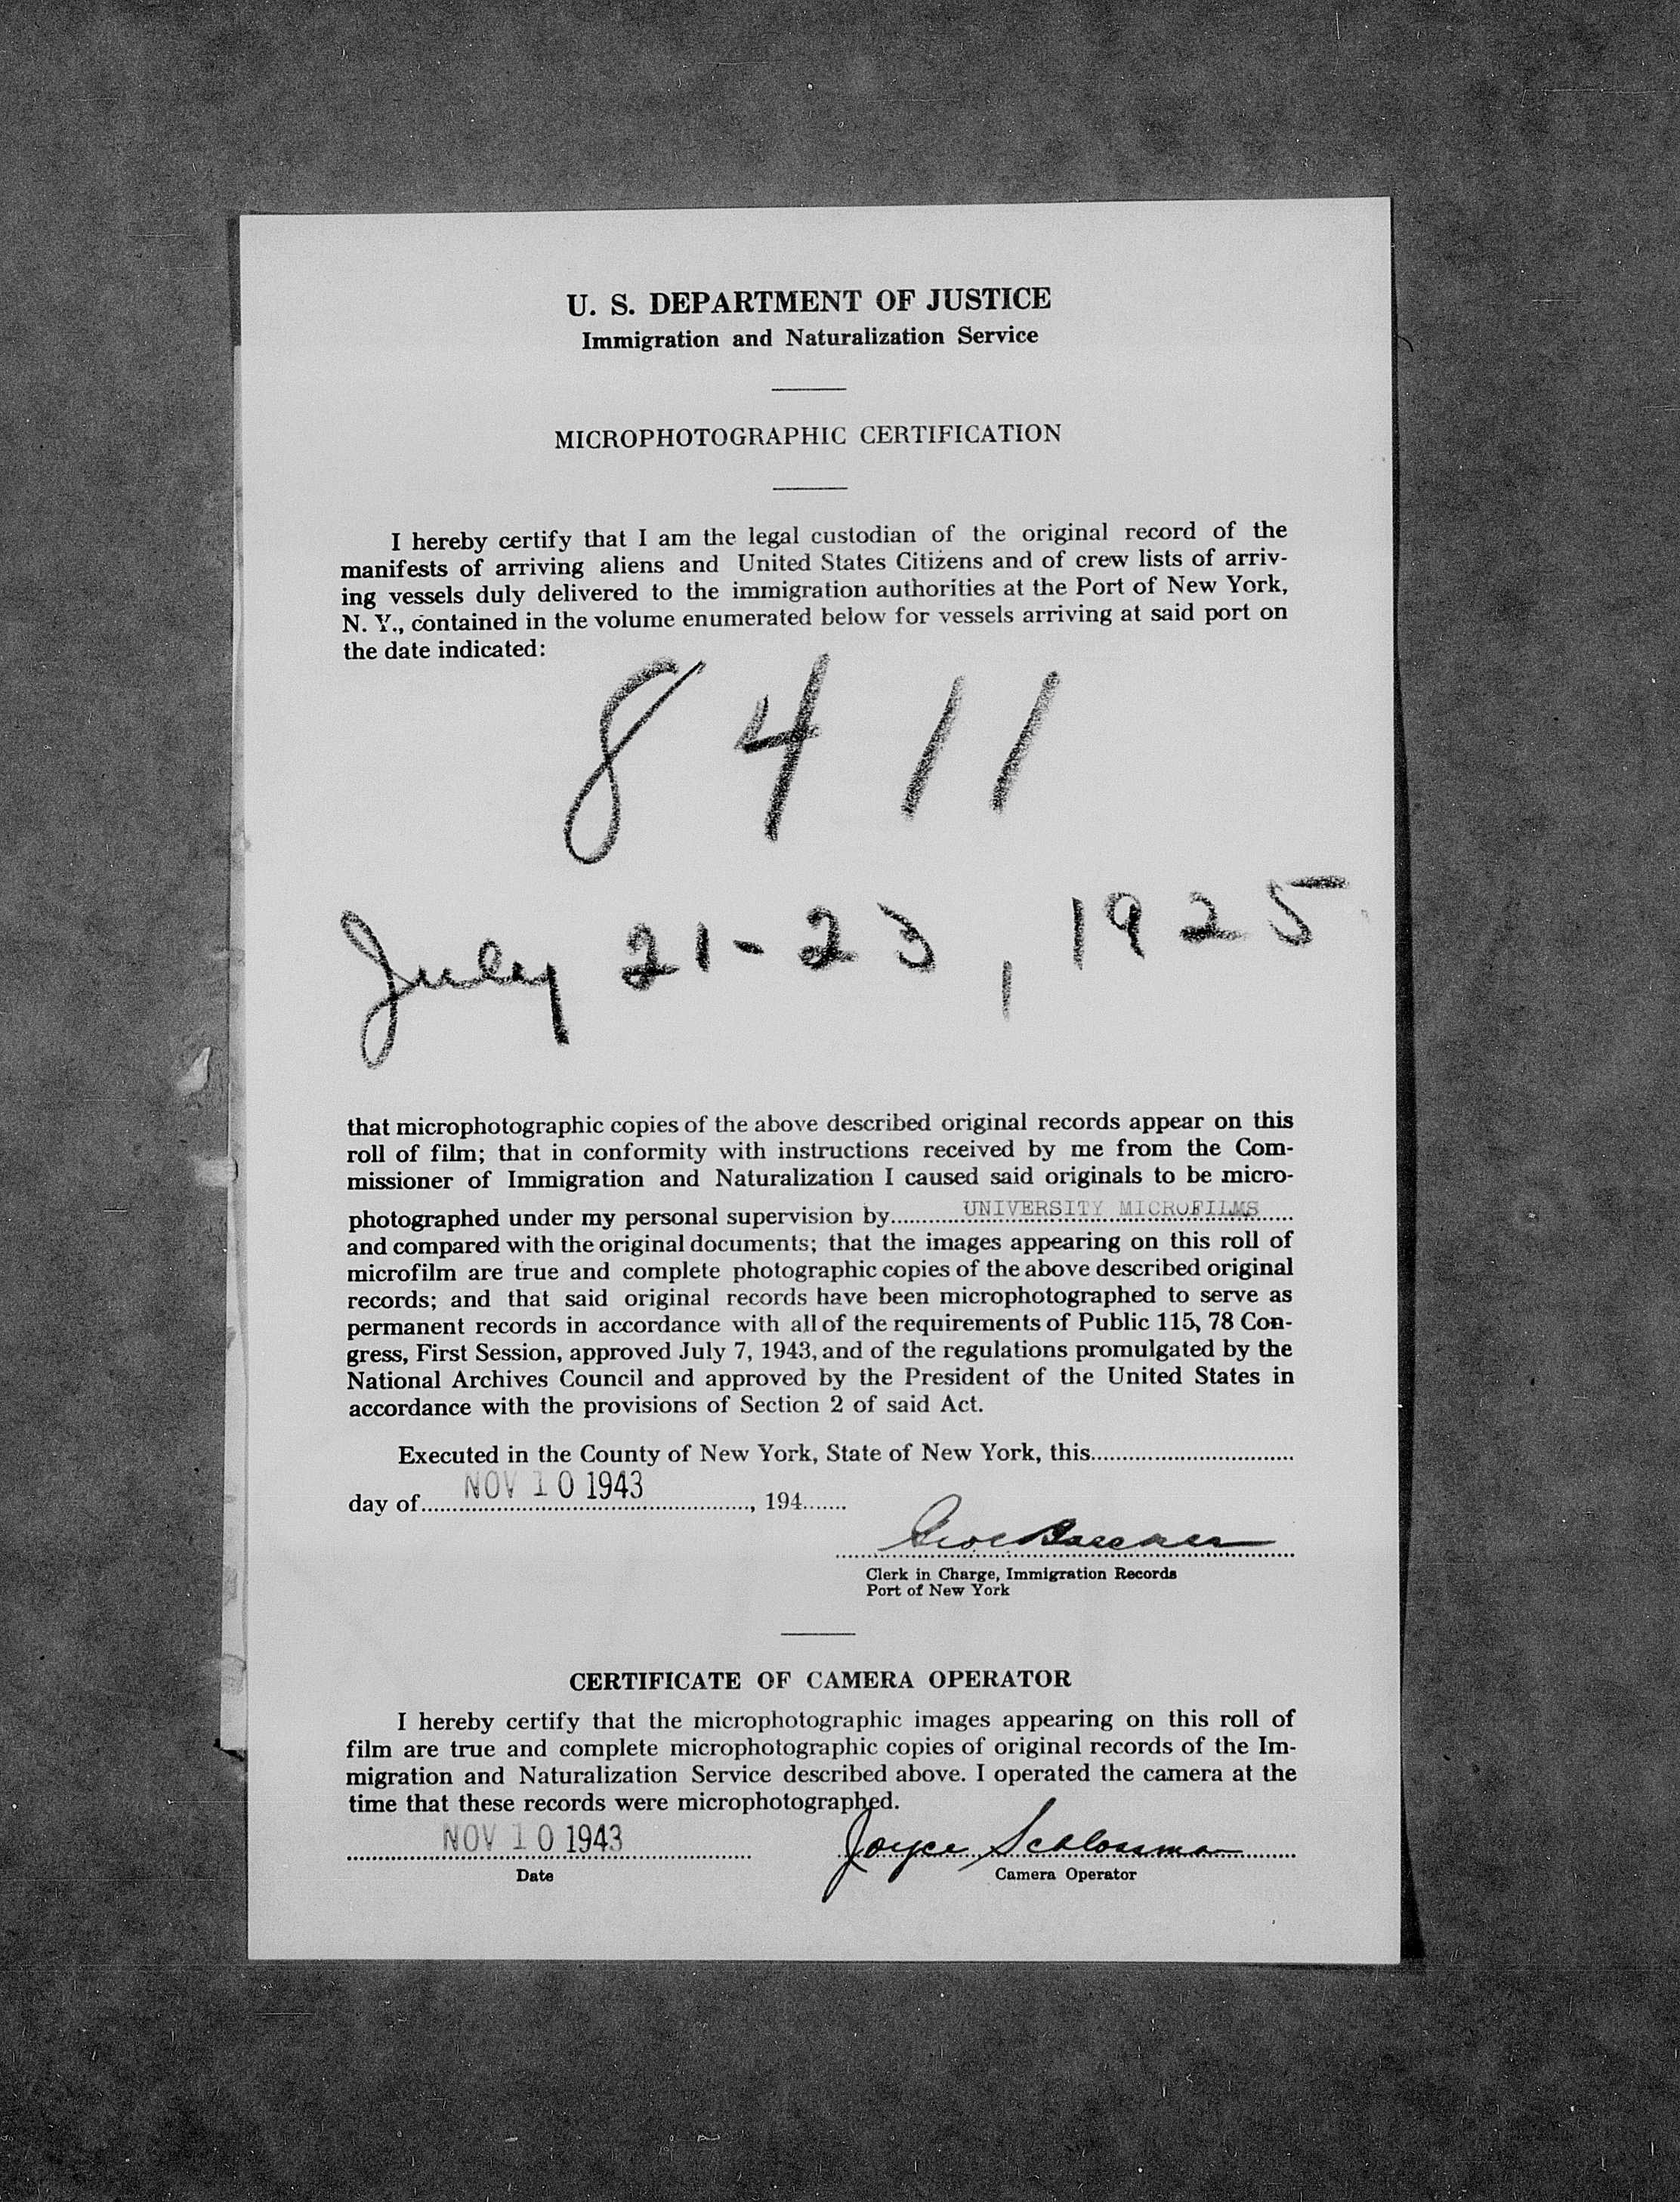 U. S. DEPARTMENT OF JUSTICE
Immigration and Naturalization Service
MICROPHOTOGRAPHIC CERTIFICATION
I hereby certify that I am the legal custodian of the original record of the
manifests of arriving aliens and United States Citizens and of crew lists of arriv-
ing vessels duly delivered to the immigration authorities at the Port of New York,
N. Y., contained in the volume enumerated below for vessels arriving at said port on
the date indicated:
8411
July 21-23, 1925
that microphotographic copies of the above described original records appear on this
roll of film; that in conformity with instructions received by me from the Com-
missioner of Immigration and Naturalization I caused said originals to be micro-
photographed under my personal supervision by UNIVERSITY MICROFILMS
and compared with the original documents; that the images appearing on this roll of
microfilm are true and complete photographic copies of the above described original
records; and that said original records have been microphotographed to serve as
permanent records in accordance with all of the requirements of Public 115, 78 Con-
gress, First Session, approved July 7, 1943, and of the regulations promulgated by the
National Archives Council and approved by the President of the United States in
accordance with the provisions of Section 2 of said Act.
Executed in the County of New York, State of New York, this
day of NOV 10 1943, 194
Clerk in Charge, Immigration Records
Port of New York
CERTIFICATE OF CAMERA OPERATOR
I hereby certify that the microphotographic images appearing on this roll of
film are true and complete microphotographic copies of original records of the Im-
migration and Naturalization Service described above. I operated the camera at the
time that these records were microphotographed.
NOV 10 1943 Joyce
Date Camera Operator